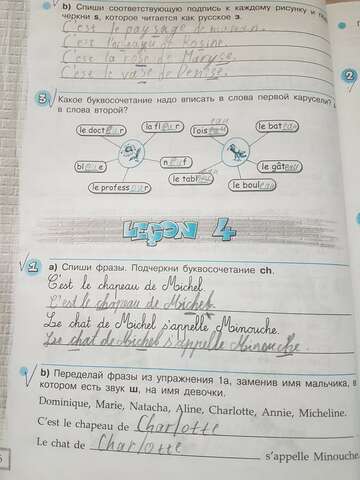 b) Спиши соответствующую подпись к каждому рисунку и
черкни s, которое читается как русское з.
C'est le paysage de maman.
C'est l'oiseau de Rosine.
C'est la rose de Maryse.
C'est le vase de Denise.
3 Какое буквосочетание надо вписать в слова первой карусели?
в слова второй?
le docteur
la fleur
l'oiseau
eau
le bateau
bleue
neuf
le gâteau
le professeur
le tableau
eau
le bouleau
LEÇON 4
1 a) Спиши фразы. Подчеркни буквосочетание ch.
C'est le chapeau de Michel.
C'est le chapeau de Michel.
Le chat de Michel s'appelle Minouche.
Le chat de Michel s'appelle Minouche.
b) Переделай фразы из упражнения 1a, заменив имя мальчика, в
котором есть звук ш, на имя девочки.
Dominique, Marie, Natacha, Aline, Charlotte, Annie, Micheline.
C'est le chapeau de Charlotte
Le chat de Charlotte s'appelle Minouche
2